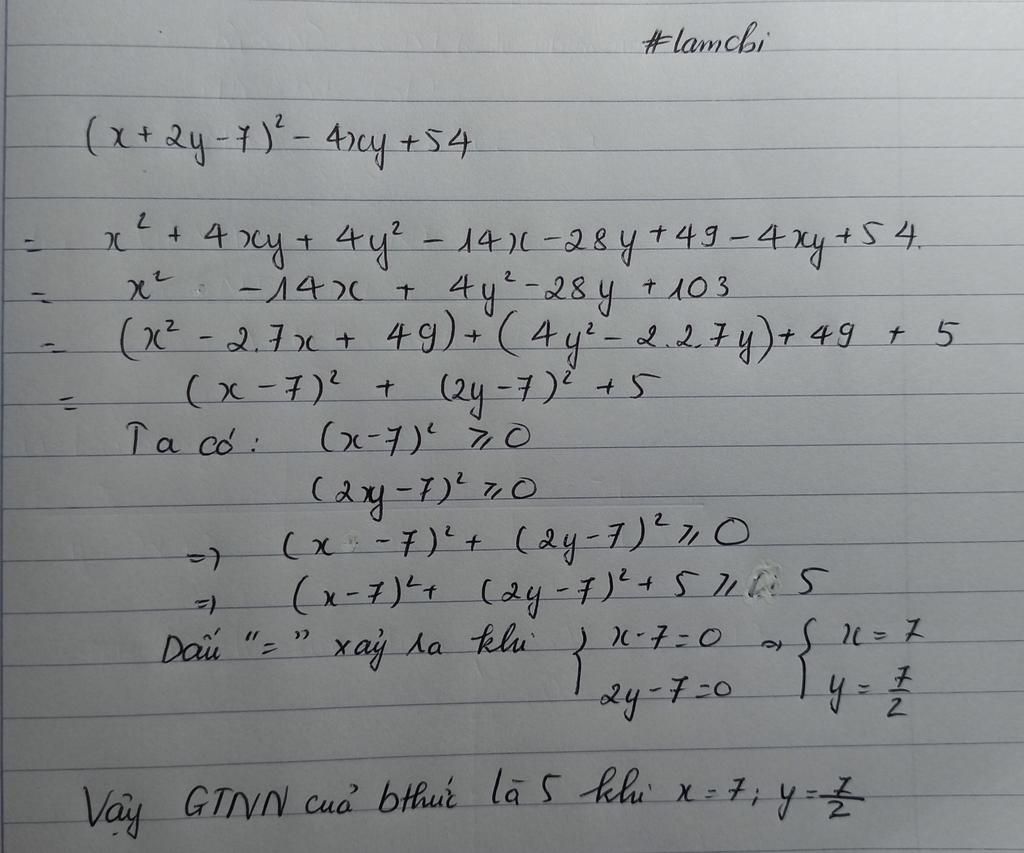 #lamchi
(x + 2y - 7)² - 4xy + 54
= x² + 4xy + 4y² - 14x - 28y + 49 - 4xy + 54.
= x² - 14x + 4y² - 28y + 103
= (x² - 2.7x + 49) + (4y² - 2.2.7y) + 49 + 5
= (x - 7)² + (2y - 7)² + 5
Ta có: (x - 7)² ⩾ 0
(2xy - 7)² ⩾ 0
=> (x - 7)² + (2y - 7)² ⩾ 0
=> (x - 7)² + (2y - 7)² + 5 ⩾ 5
Dấu "=" xảy ra khi { x - 7 = 0 => { x = 7
2y - 7 = 0 y = 7/2
Vậy GTNN cuả bthức là 5 khi x = 7; y = 7/2